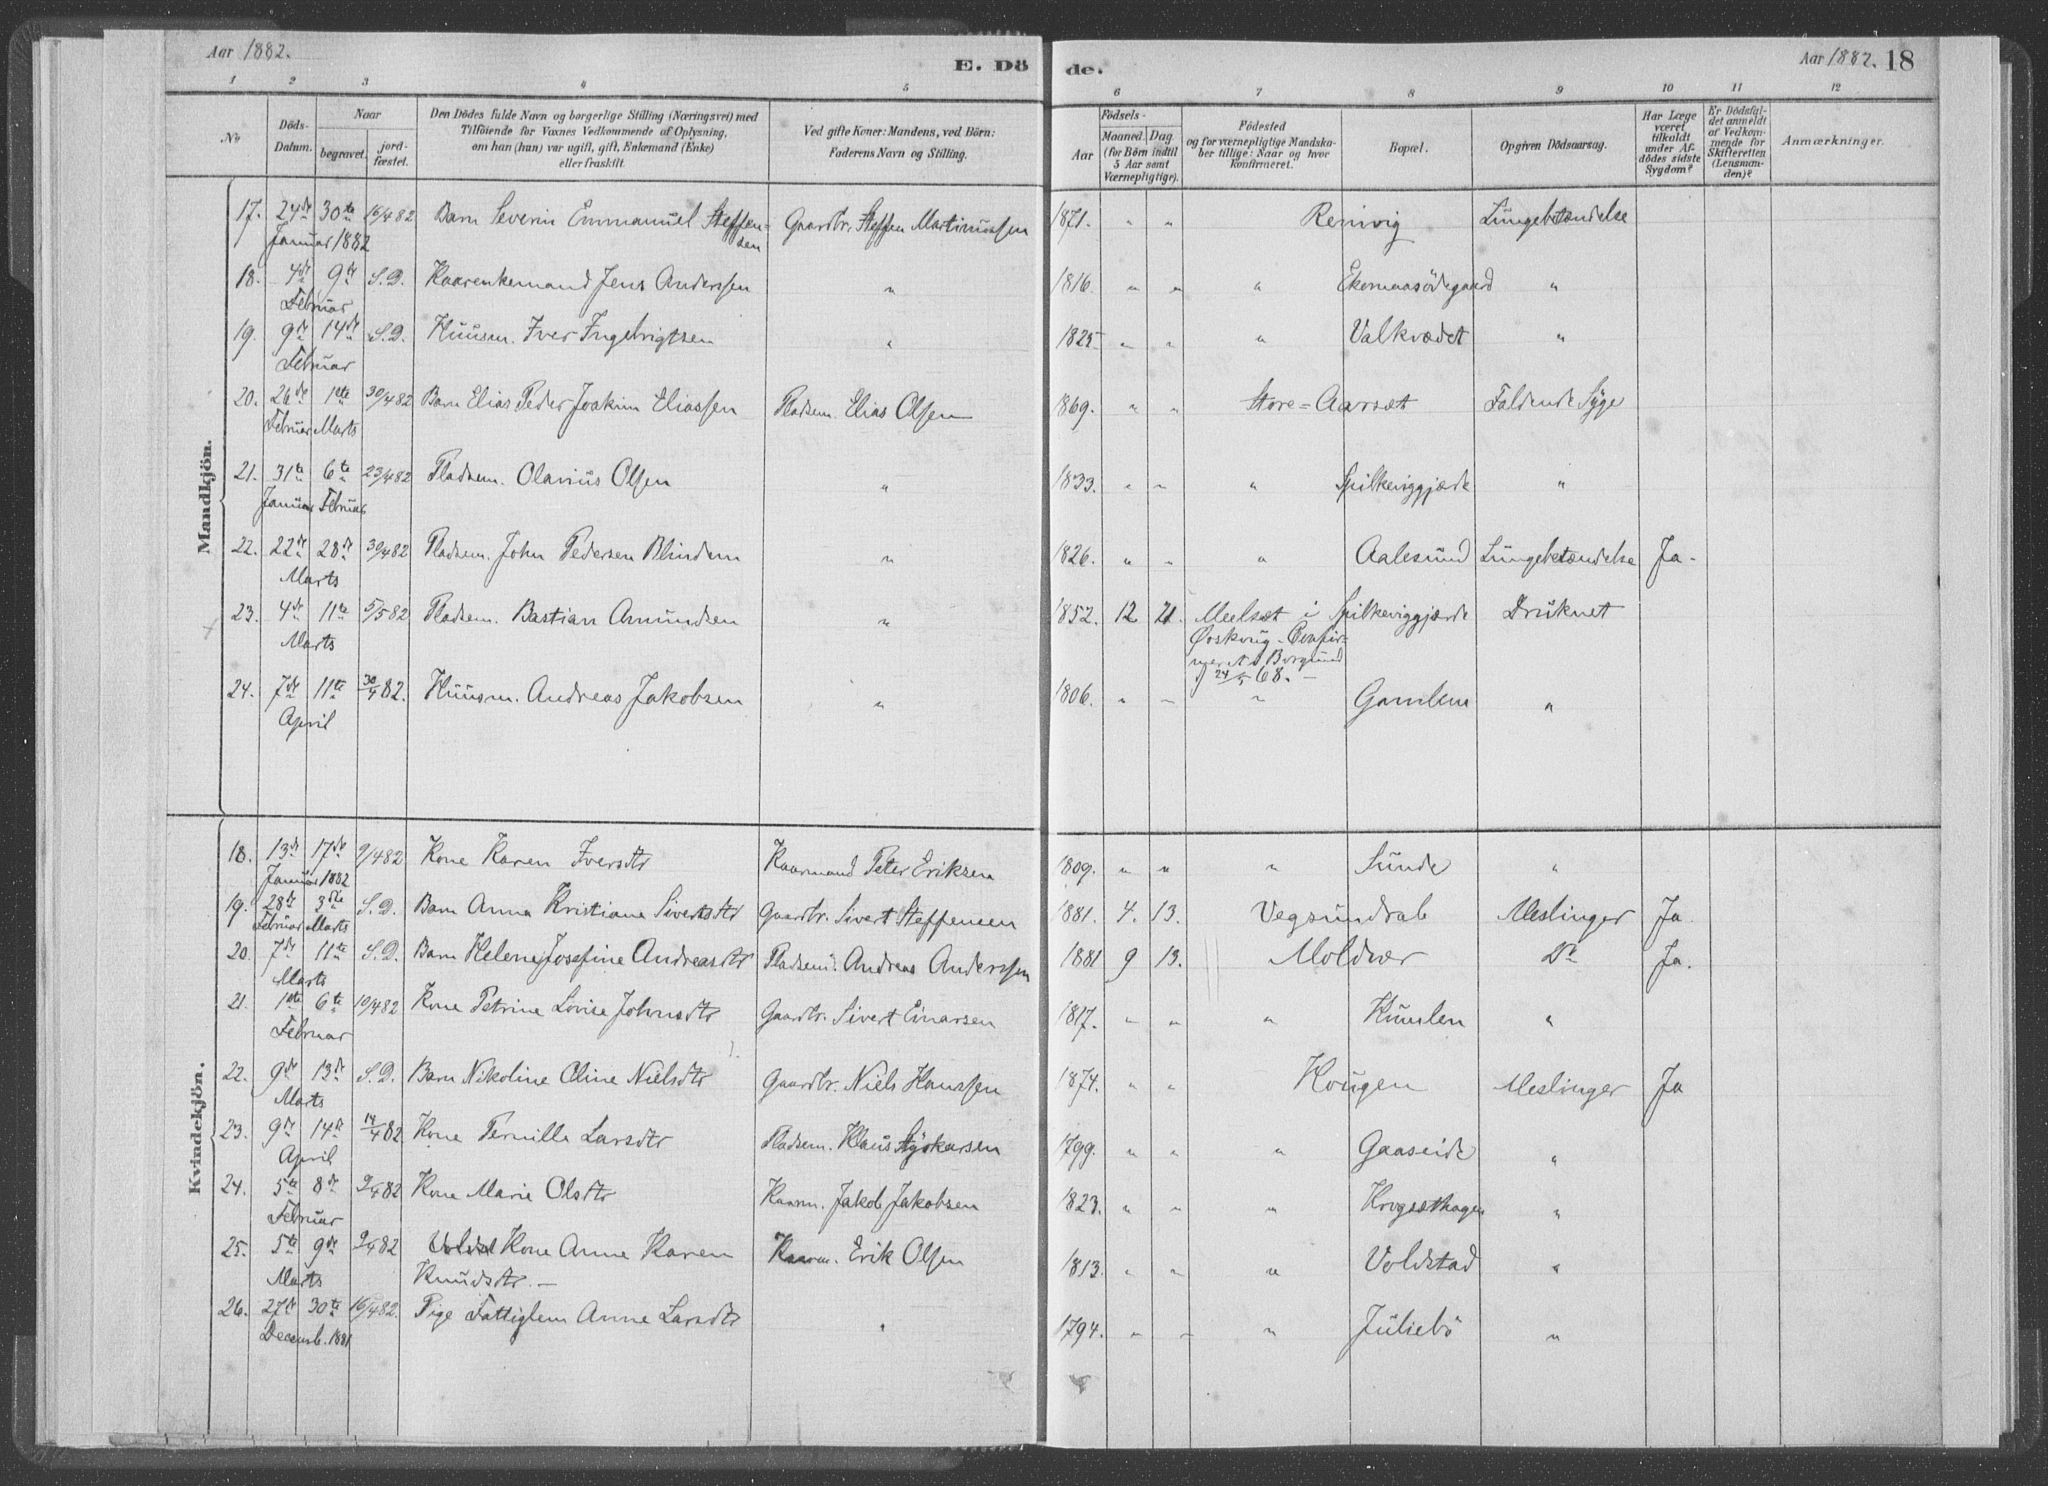 Aar 1882.
E. Dö
de.
Aar 1882. 18
1 2 3 4 5 6 7 8 9 10 11 12
No
Döds-
Datum.
Naar
begravet.
jord-
fæstet.
Den Dödes fulde Navn og borgerlige Stilling (Næringsvei) med
Tilföiende for Voxnes Vedkommende af Oplysning,
om han (hun) var ugift, gift, Enkemand (Enke)
eller fraskilt.
Ved gifte Koner: Mandens, ved Börn:
Faderens Navn og Stilling.
Födsels-
Aar
Maaned. Dag.
(for Börn indtil
5 Aar samt
Værnepligtige).
Födested
og for værnepligtige Mandska-
ber tillige: Naar og hvor
konfirmeret.
Bopæl.
Opgiven Dödsaarsag.
Har Læge
været
tilkaldt
under Af-
dödes sidste
Sygdom?
Er Dödsfal-
det anmeldt
af Vedkom-
mende for
Skifteretten
(Lensman-
den)?
Anmærkninger.
Mandkjön.
17. 24de 30te 16/4 82 Barn Severin Emmanuel Steffen- Gaardbr. Steffen Martinussen 1871. " " Remvig Lungebetændelse
Januar 1882 sen
18. 4de 9de S.D. Kaarenkemand Jens Anderssen " 1816. " " " Ekornaasödegaard "
Februar
19. 9de 14de S.D. Huusm. Iver Ingebrigtsen " 1825 " " " Valkvædet "
Februar
20. 26de 1ste 30/4 82 Barn Elias Peder Joakim Eliassen Pladsm. Elias Olsen 1869. " " Store-Aarsæt Faldende Syge
Februar Marts
21. 31te 6te 23/4 82 Pladsm. Olarius Olsen " 1833. " " " Spilkeviggjærde "
Januar Februar
22. 22de 28de 30/4 82 Pladsm. John Pedersen Blindem " 1826. " " " Aalesund Lungebetændelse Ja.
Marts
23. 4de 11te 5/5 82 Pladsm. Bastian Amundsen " 1852. 12 21. Meelset i Spilkeviggjærde Druknet
Marts Ørskoug - Confir-
meret i Borgund
24/5 68. -
24. 7de 11te 30/4 82. Huusm. Andreas Jakobsen " 1806. " " " Gamlem "
April
Kvindekjön.
18. 13de 17de 9/4 82 Kone Karen Iversdtr Kaarmand Peter Eriksen 1809. " " " Sunde "
Januar 1882
19. 28de 3die S.D. Barn Anna Kristiane Sivertsdtr Gaardbr. Sivert Steffensen 1881. 4. 13. Vegsundral Meslinger Ja
Februar Marts
20. 7de 11te S.D. Barn Helene Josefine Andreasdtr Pladsm. Andreas Anderssen 1881 9 13. Moldvær Do Ja.
Marts
21. 1ste 6te 10/4 82 Kone Petrine Lovise Johnsdtr Gaardbr. Sivert Einarsen 1817. " " " Humlen "
Februar
22. 9de 13de S.D. Barn Nikoline Oline Nielsdtr Gaardbr. Niels Hanssen 1874. " " Hougen Meslinger Ja
Marts
23. 9de 14de 14/4 82 Kone Pernille Larsdtr Pladsm. Klaus Styrkarsen 1799. " " " Gaaseide "
April
24. 5te 8de 2/4 82 Kone Marie Olsdtr Kaarm. Jakob Jakobsen 1823. " " " Krogsæthagen "
Februar
25. 5te 9de 2/4 82 Kone Anne Karen Kaarm. Erik Olsen 1813. " " " Voldstad "
Marts Knudsdtr. -
26. 27de 30te 16/4 82. Pige Fattiglem Anne Larsdtr " 1794. " " " Juliebö "
Decemb. 1881